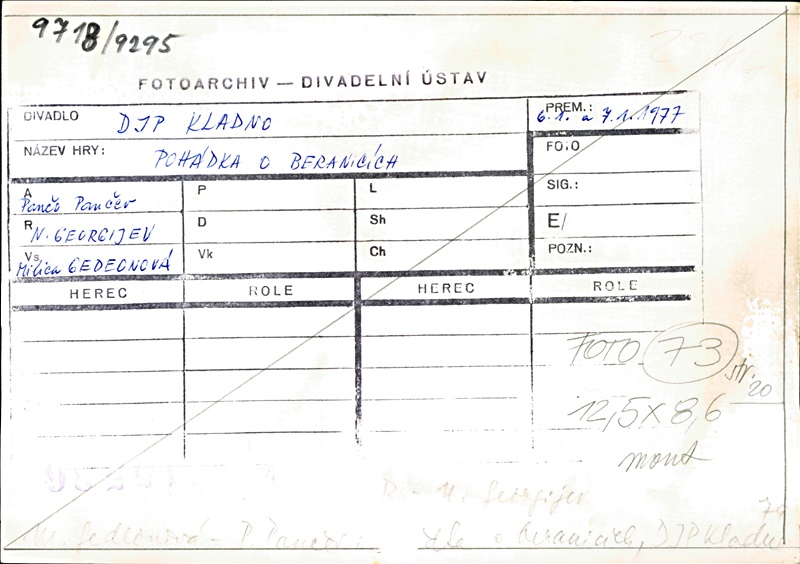 9718/9295
FOTOARCHIV — DIVADELNÍ ÚSTAV
DIVADLO DJP KLADNO
PREM.: 6.1. a 7.1.1977
NÁZEV HRY: POHÁDKA O BERANICÍCH
FOTO
A Pančo Pančev
P
L
SIG.:
R N. GEORGIJEV
D
Sh
E/
Vs, Milica GEDEONOVÁ
Vk
Ch
POZN.:
HEREC ROLE HEREC ROLE
FOTO 73 str. 20
12,5 x 8,6
mont
R - N. Georgijev
M. Gedeonová - P. Pančev o beranicích, DJP Kladno